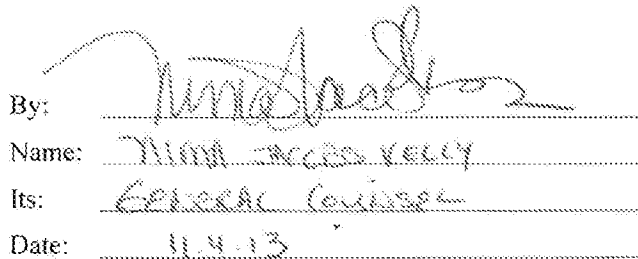 By:
Name: NIMA JACOBS KELLY
Its: GENERAL COUNSEL
Date: 11.4.13